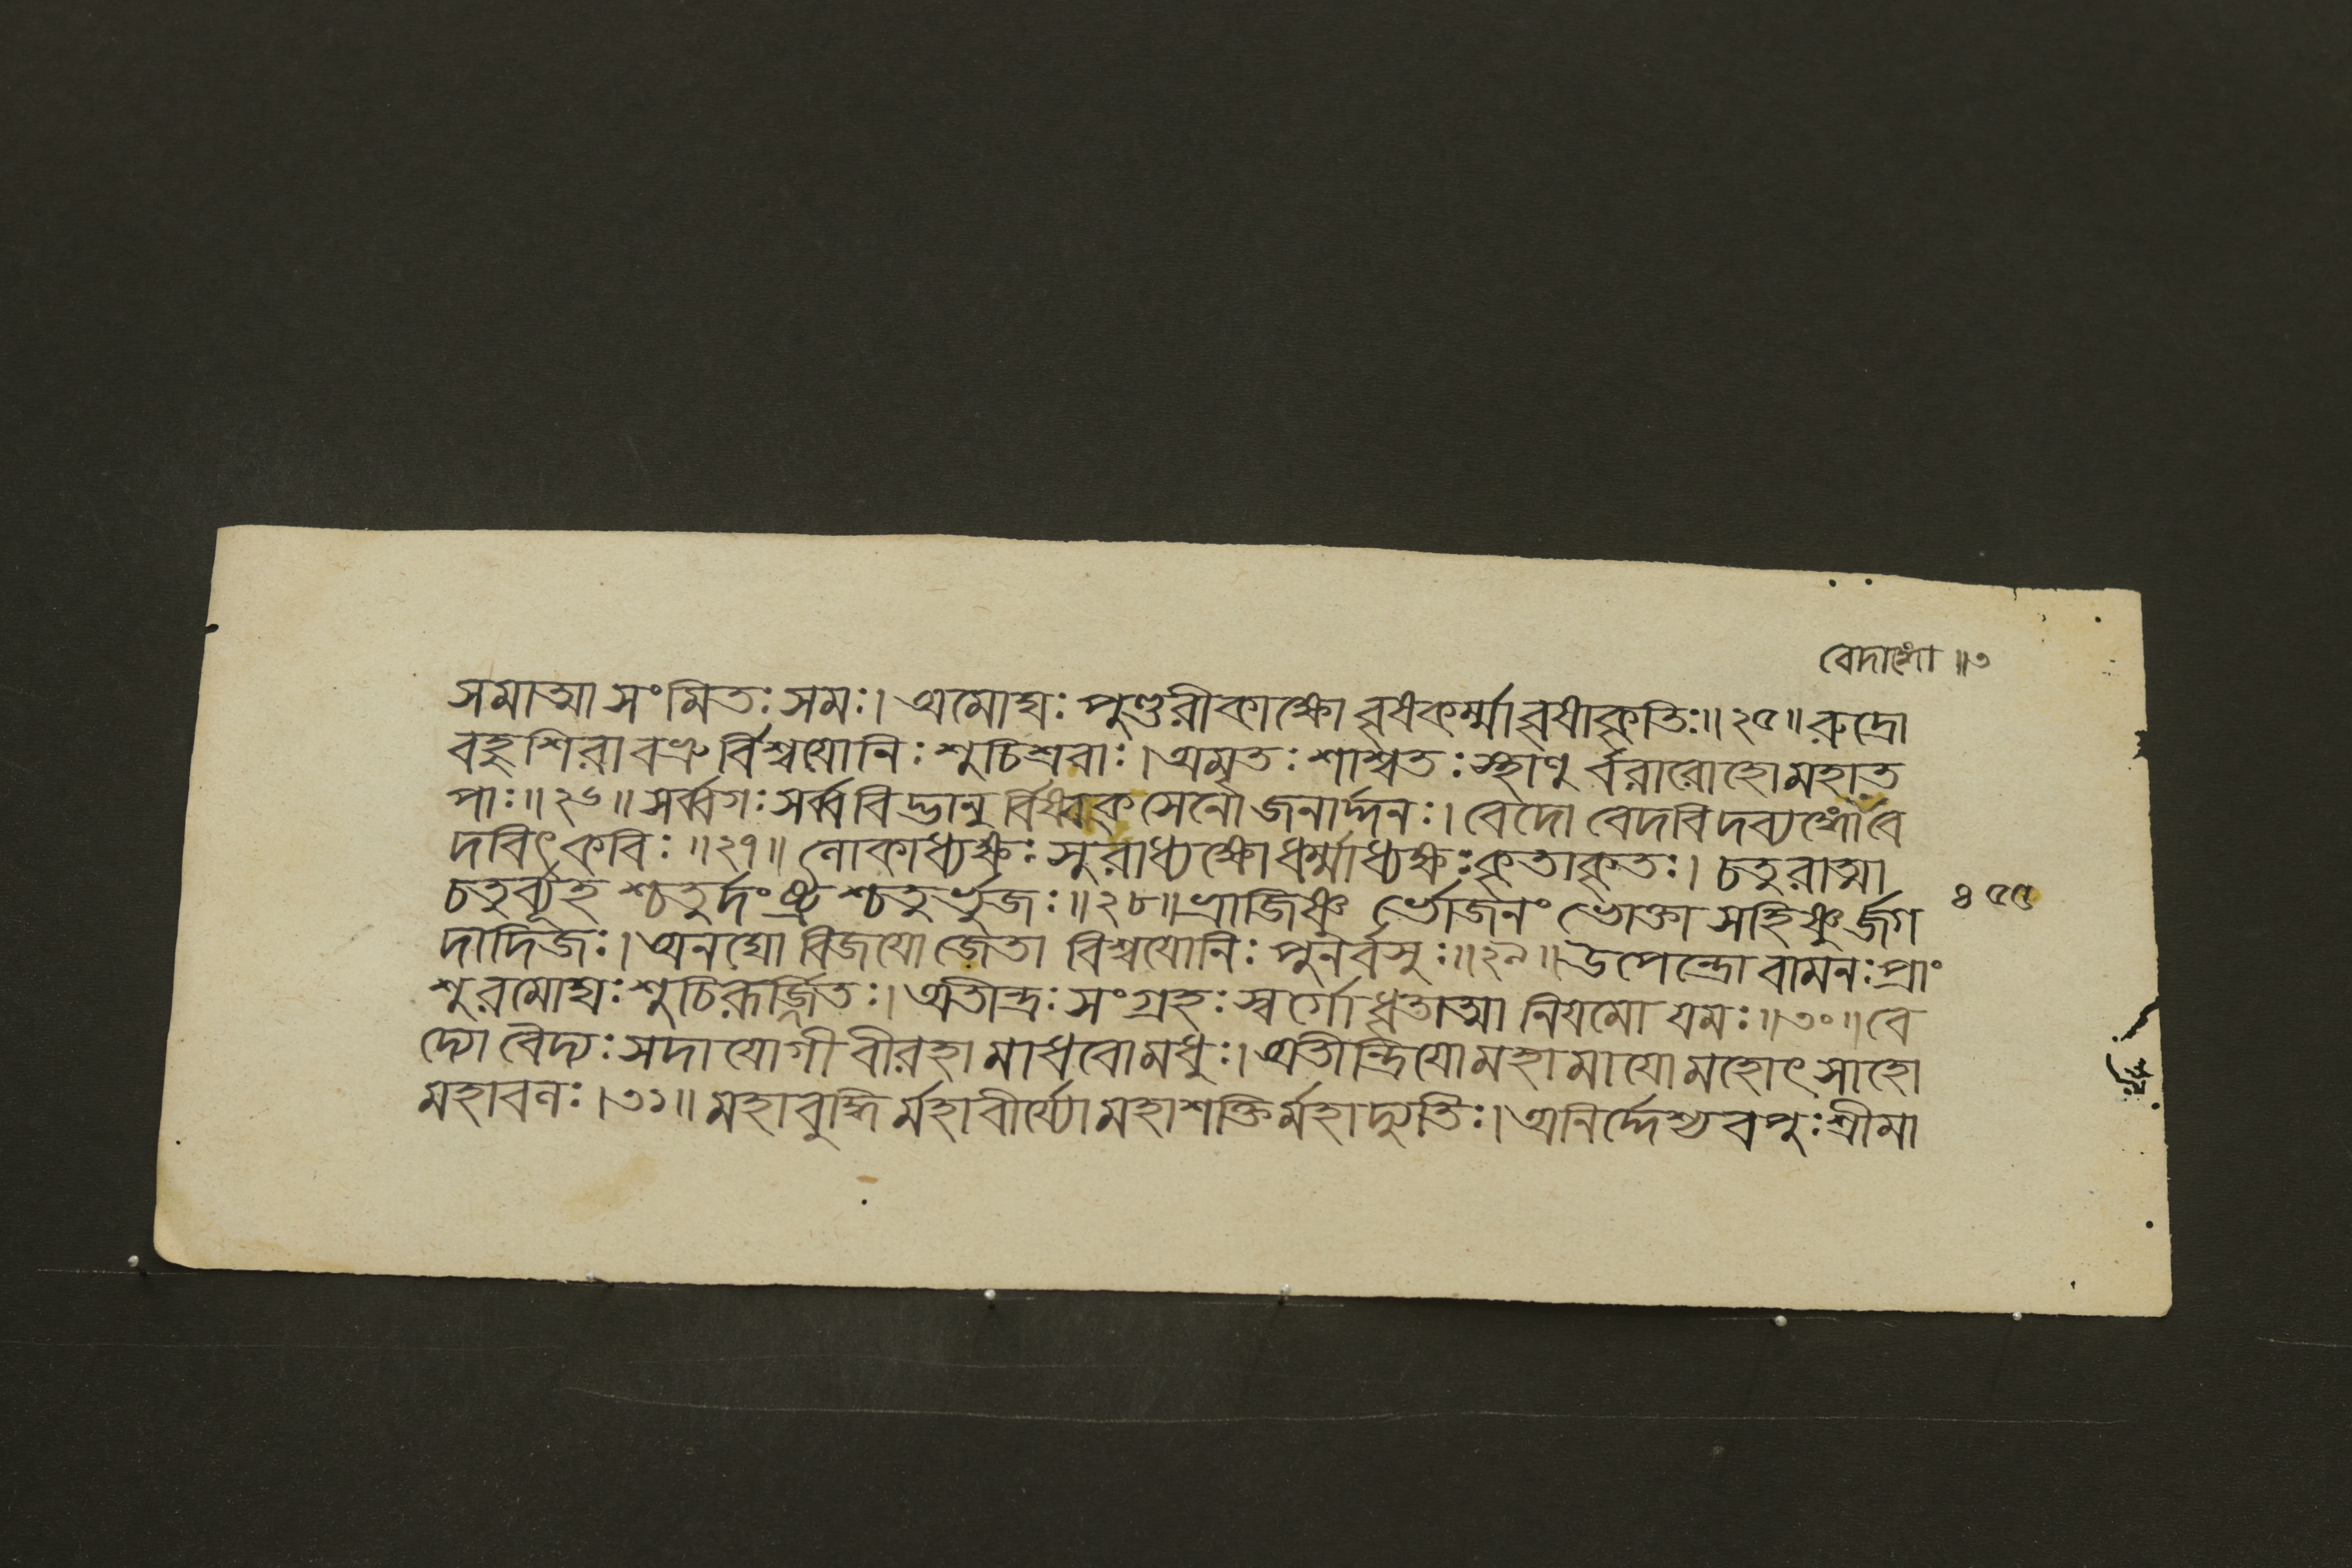 বেদাঙ্গো ॥৩
সমাত্মা সংমিতঃ সমঃ। অমোঘঃ পুণ্ডরীকাক্ষো বৃষকর্ম্মা বৃষাকৃতিঃ॥২৫॥ রুদ্রো
বহুশিরা বভ্রু র্বিশ্বযোনিঃ শুচিশ্রবাঃ। অমৃতঃ শাশ্বতঃ স্থাণু র্বরারোহো মহাত
পাঃ॥২৬॥ সর্ব্বগঃ সর্ব্ববিদ্ভানু র্বিষ্বক্সেনো জনার্দ্দনঃ। বেদো বেদবিদব্যঙ্গো বে
দবিৎ কবিঃ॥২৭॥ লোকাধ্যক্ষঃ সুরাধ্যক্ষো ধর্ম্মাধ্যক্ষঃ কৃতাকৃতঃ। চতুরাত্মা
চতুর্ব্যূহ শ্চতুর্দংষ্ট্র শ্চতুর্ভুজঃ॥২৮॥ ভ্রাজিষ্ণু র্ভোজনং ভোক্তা সহিষ্ণু র্জগ ৪৫৫
দাদিজঃ। অনঘো বিজযো জেতা বিশ্বযোনিঃ পুনর্বসুঃ॥২৯॥ উপেন্দ্রো বামনঃ প্রাং
শুরমোঘঃ শুচিরূর্জ্জিতঃ। অতীন্দ্রঃ সংগ্রহঃ স্বর্গো ধৃতাত্মা নিযমো যমঃ॥৩০॥ বে
দ্যো বৈদ্যঃ সদাযোগী বীরহা মাধবো মধুঃ। অতীন্দ্রিযো মহামাযো মহোৎসাহো
মহাবলঃ।৩১॥ মহাবুদ্ধি র্মহাবীর্য্যো মহাশক্তি র্মহাদ্যুতিঃ। অনির্দ্দেশ্যবপুঃ শ্রীমা